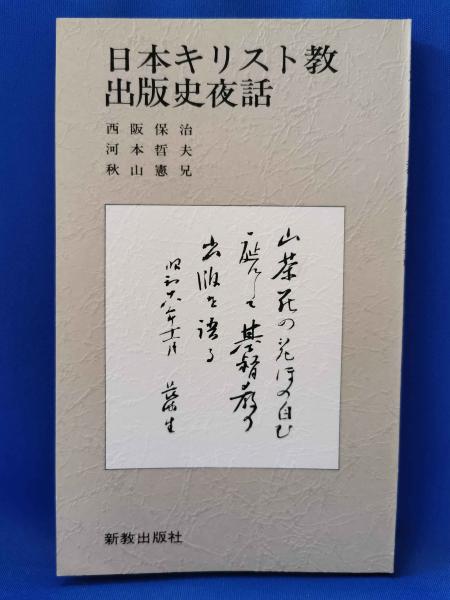 日本キリスト教
出版史夜話
西阪保治
河本哲夫
秋山憲兄
山茶花の花ほの白む
座して基督教の
出版を語る
昭和十六年十一月
生
新教出版社